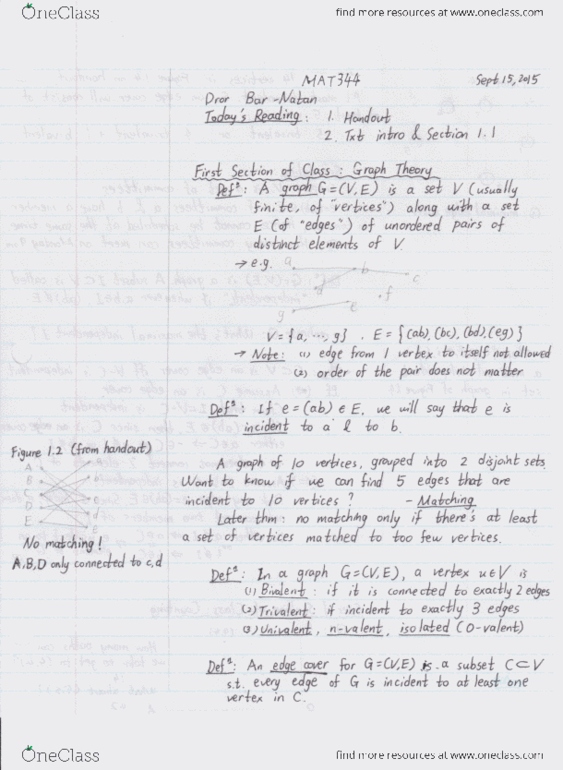 OneClass find more resources at www.oneclass.com
MAT344 Sept. 15, 2015
Dror Bar-Natan
Today's Reading: 1. Handout
2. Txt intro & Section 1.1
First Section of Class: Graph Theory
Defⁿ: A graph G=(V,E) is a set V (usually
finite, of "vertices") along with a set
E (of "edges") of unordered pairs of
distinct elements of V
→ e.g. a
b
c
d
f
g e
V={a, ..., g} . E={(ab),(bc),(bd),(eg)}
→ Note: (1) edge from 1 vertex to itself not allowed
(2) order of the pair does not matter
Defⁿ: If e=(ab)∈E, we will say that e is
incident to a & to b.
Figure 1.2 (from handout)
A
B
D
E
No matching!
A,B,D only connected to c,d
A graph of 10 vertices, grouped into 2 disjoint sets
Want to know if we can find 5 edges that are
incident to 10 vertices? - Matching
Later thm: no matching only if there's at least
a set of vertices matched to too few vertices.
Defⁿ: In a graph G=(V,E), a vertex u∈V is
(1) Bivalent: if it is connected to exactly 2 edges
(2) Trivalent: if incident to exactly 3 edges
(3) Univalent, n-valent, isolated (0-valent)
Defⁿ: An edge cover for G=(V,E) is a subset C⊂V
s.t. every edge of G is incident to at least one
vertex in C.
OneClass find more resources at www.oneclass.com